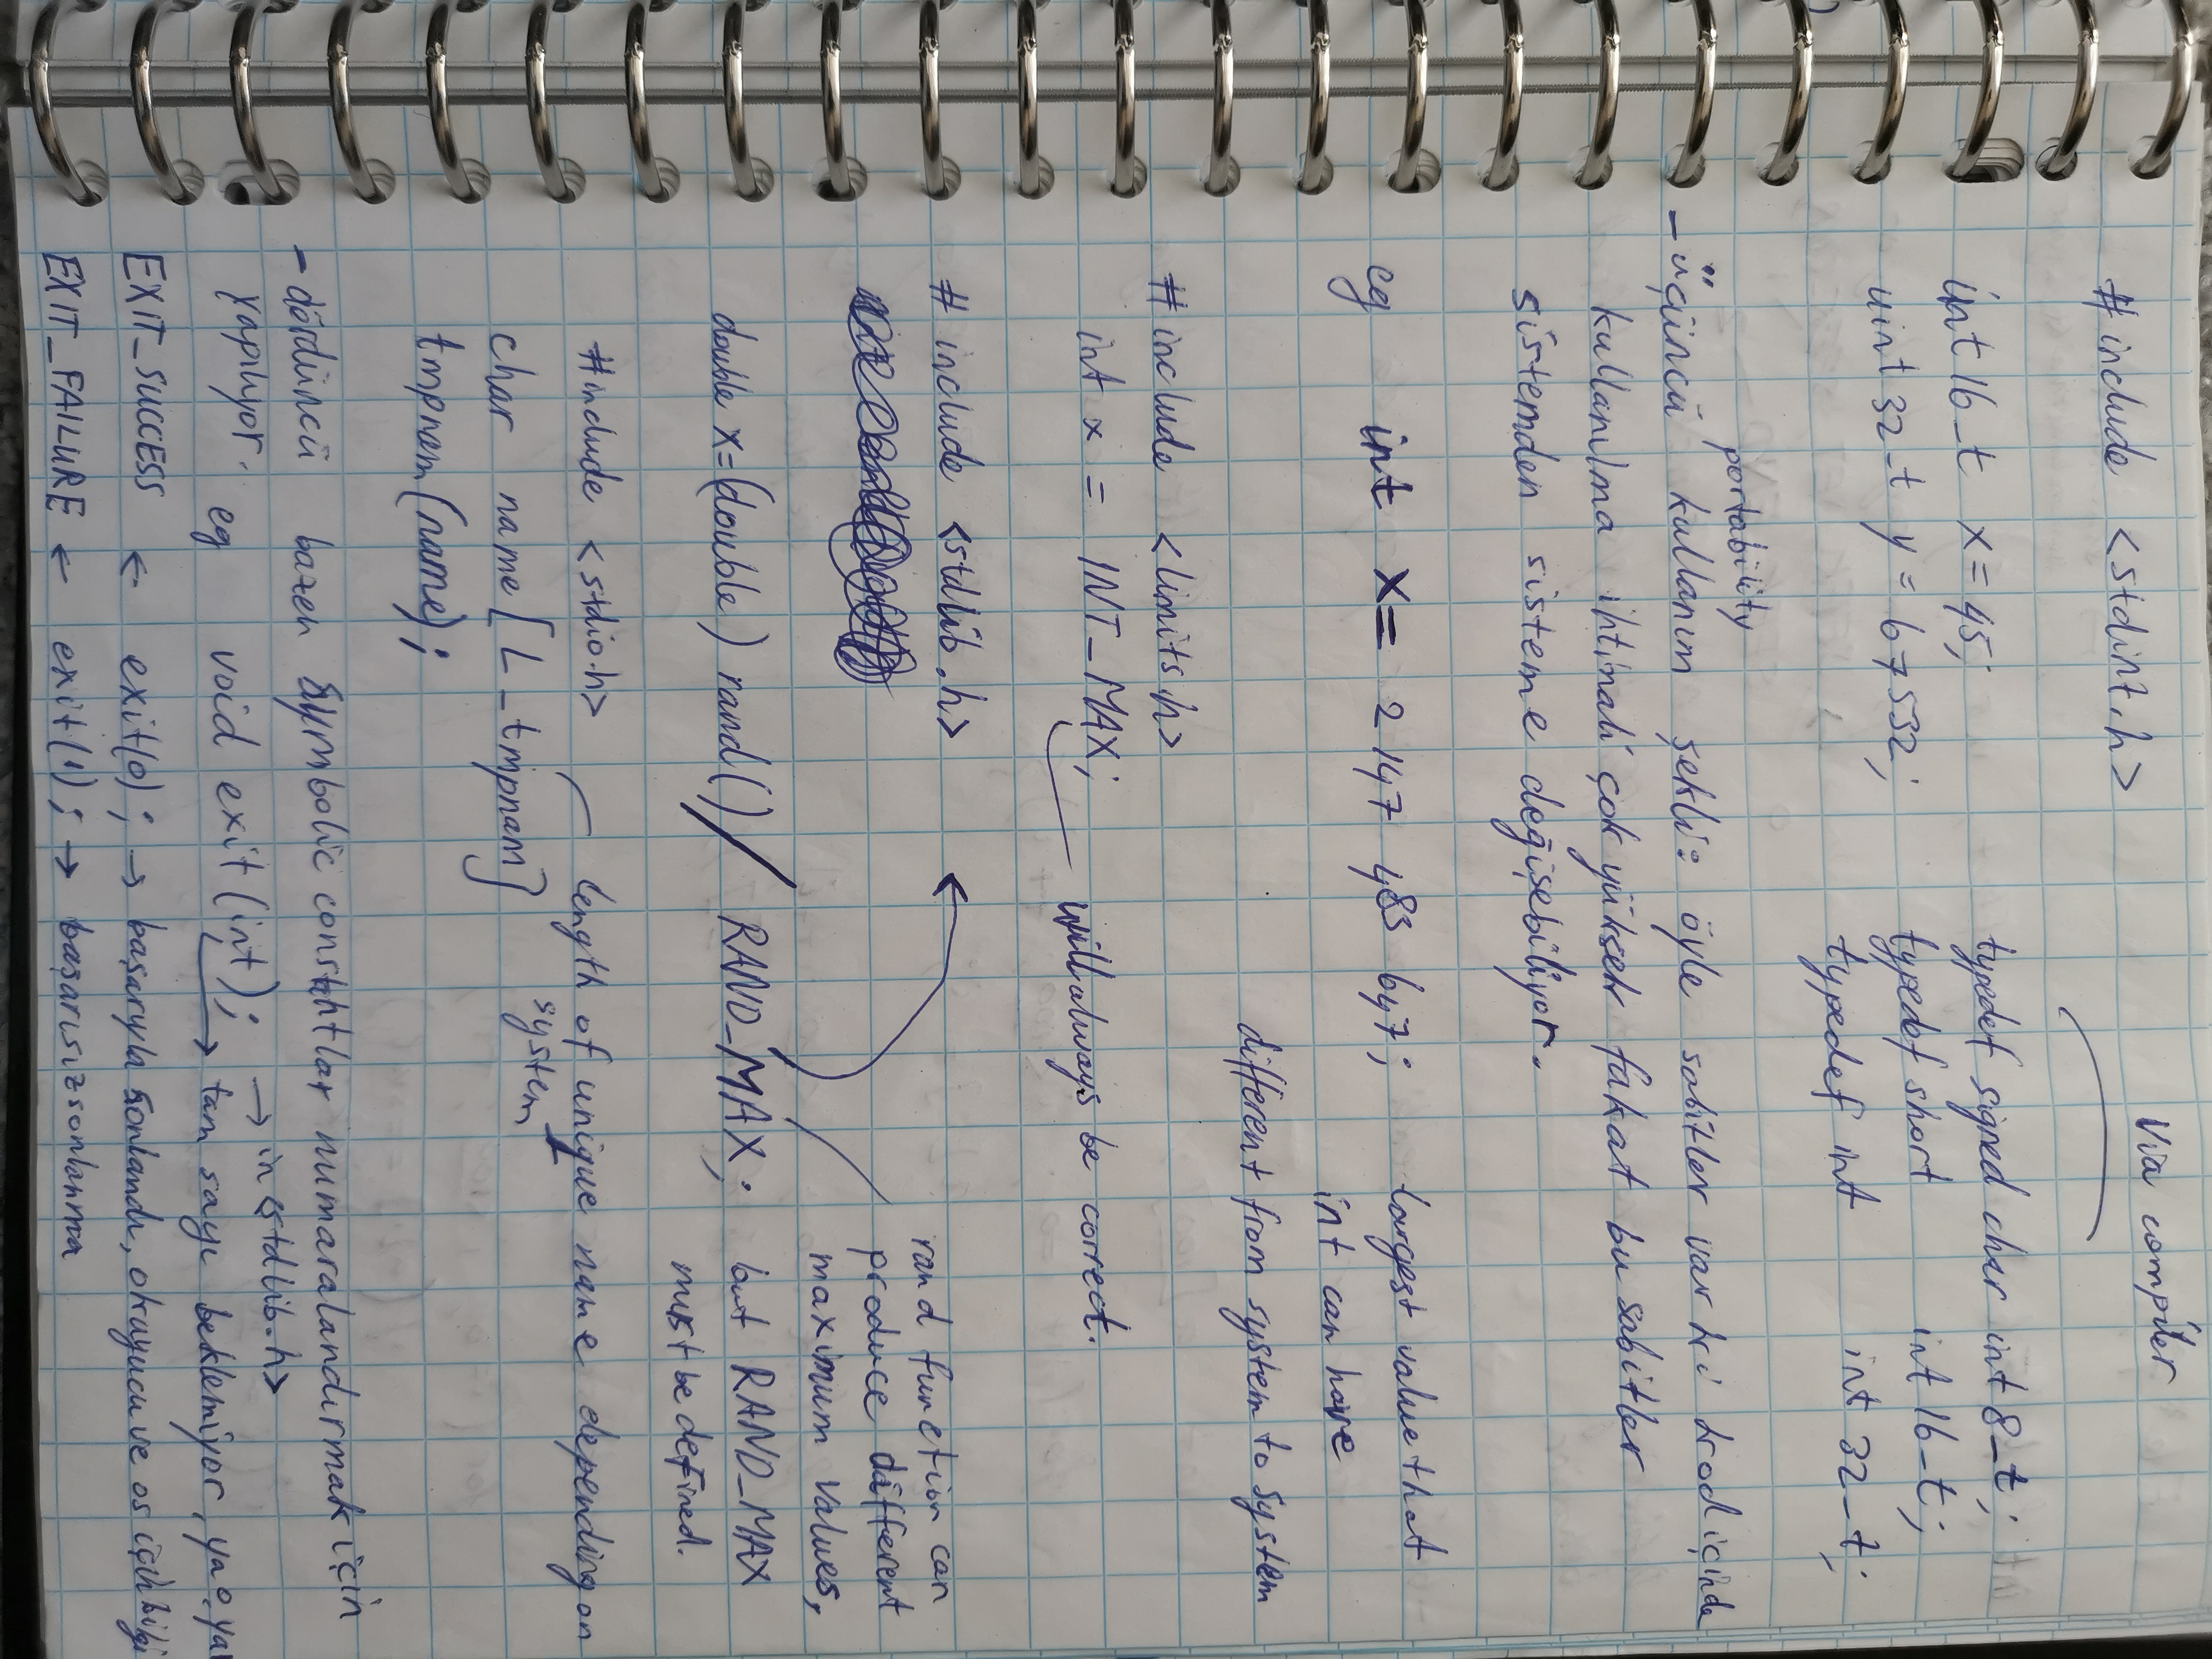 #include <stdint.h>
Via compiler
int16_t x = 45;
uint32_t y = 67532;
typedef signed char int8_t;
typedef short int16_t;
typedef int int32_t;
portability
- üçüncü kullanım şekli: öyle sabitler var ki kod içinde
kullanılma ihtimali çok yüksek fakat bu sabitler
sistemden sisteme değişebiliyor.
eg int x = 2 147 483 647;
largest value that
int can have
different from system to system
#include <limits.h>
int x = INT_MAX;
will always be correct.
#include <stdlib.h>
rand function can
produce different
maximum values,
but RAND_MAX
must be defined.
double x=(double) rand() / RAND_MAX;
#include <stdio.h>
length of unique name depending on
system
char name[L_tmpnam]
tmpnam(name);
- dördüncü bazen symbolic constantlar numaralandırmak için
yapılıyor.
eg void exit(int); → in <stdlib.h>
→ tam sayı beklemiyor, ya 0, ya
EXIT_SUCCESS ← exit(0); → başarıyla sonlandı, okuyucu ve os için bilgi
EXIT_FAILURE ← exit(1); → başarısız sonlanma